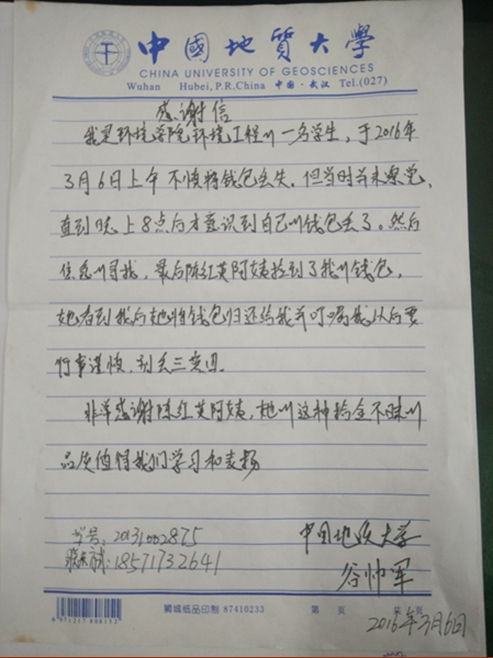 中國地質大學
CHINA UNIVERSITY OF GEOSCIENCES
Wuhan Hubei, P.R.China 中國·武汉 Tel.(027)
感谢信
我是环境学院环境工程的一名学生，于2016年
3月6日上午不慎将钱包丢失。但当时并未察觉，
直到晚上8点后才意识到自己的钱包丢了。然后
焦急的寻找，最后陈红英阿姨捡到了我的钱包，
她看到我后她将钱包归还给我并叮嘱我以后要
行事谨慎，别丢三落四。
非常感谢陈红英阿姨，她的这种拾金不昧的
品质值得我们学习和表扬
学号：20131002875
联系方式：18571732641
中国地质大学
谷帅军
2016年3月6日
狮城纸品印制 87410233 第 页 共 页